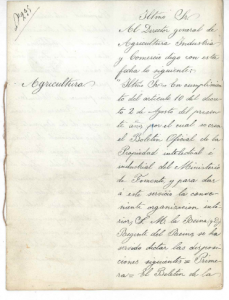 Iltmo Sr.
Al Director general de
Agricultura Industria
y Comercio digo con esta
fecha lo siguiente:
Agricultura
Iltmo Sr.= En cumplimien
to del articulo 10 del decre
to 2 de Agosto del presen
te año, por el cual se crea
el Boletin Oficial de la
Propiedad intelectual é
industrial del Ministerio
de Fomento, y para dar
á este servicio la conve
niente organizacion inte
rior, S. M. la Reina, q. D. g.
Regente del Reino se ha
servido dictar las disposi
ciones siguientes = Prime
ra = El Boletin de la